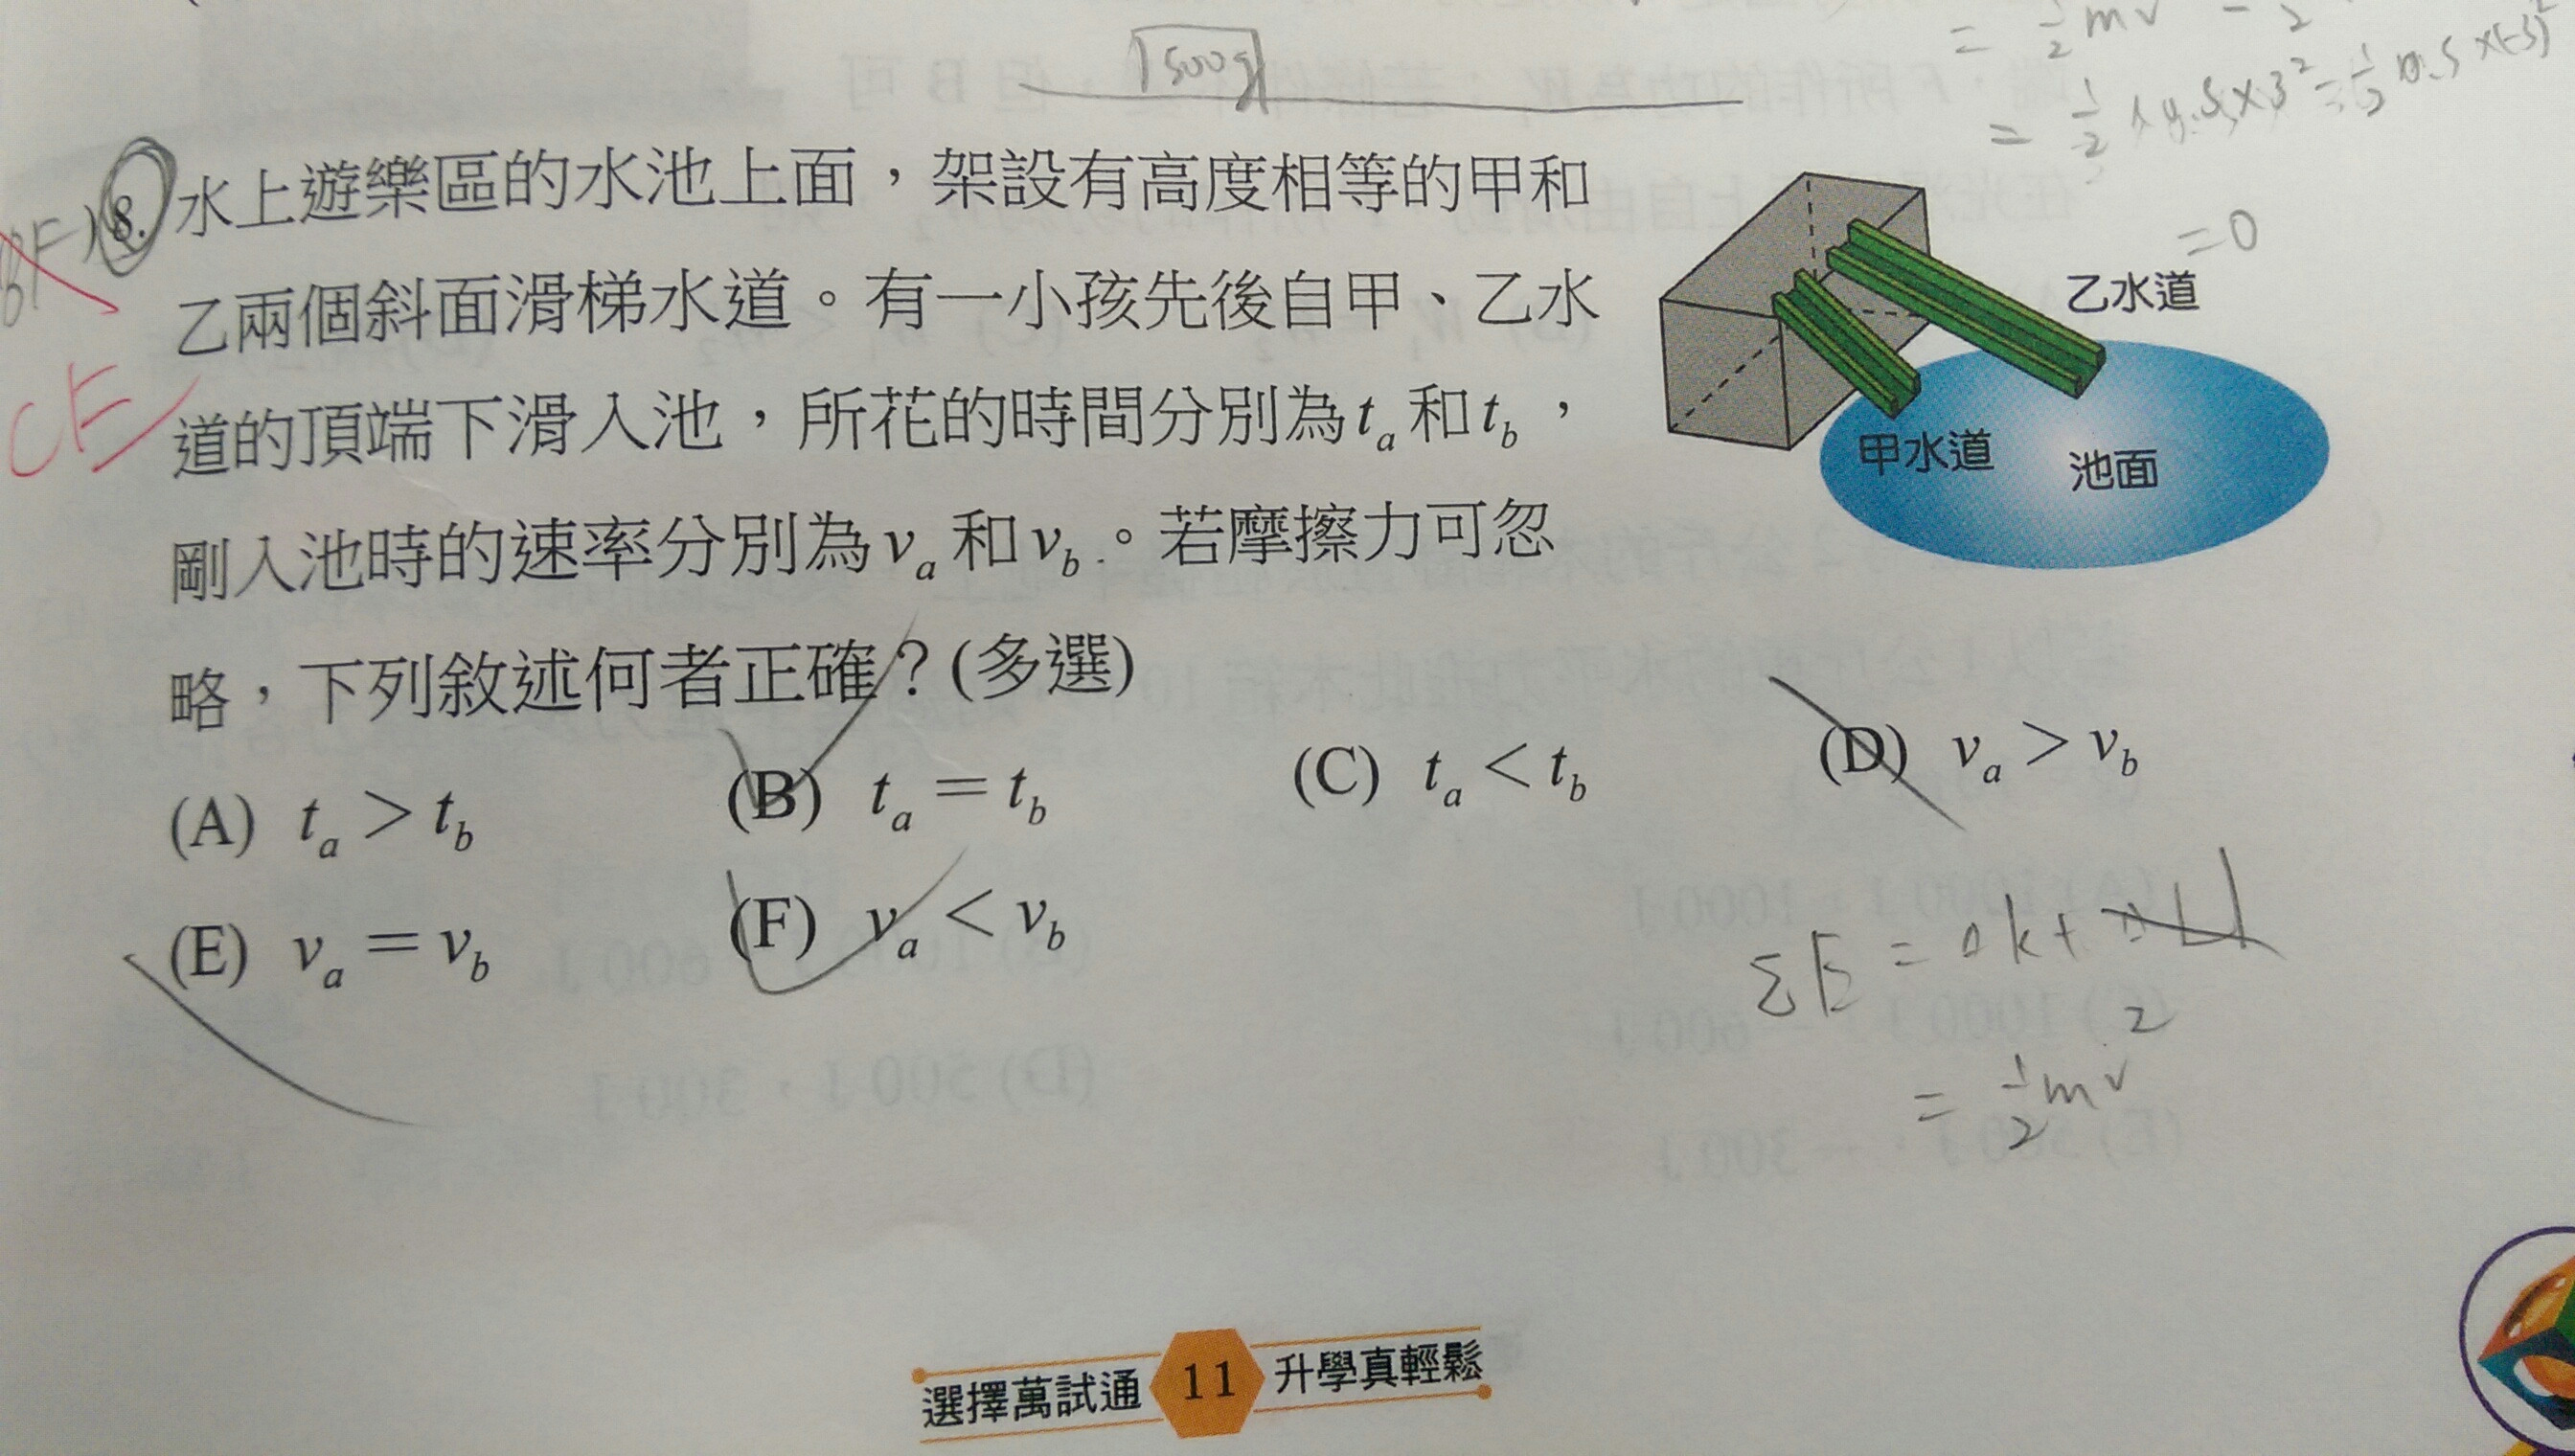 1500g
= ½mv
= ½×0.5×3² - ½ 0.5×(-3)²
=0
(BF)
CE
8. 水上遊樂區的水池上面，架設有高度相等的甲和
乙兩個斜面滑梯水道。有一小孩先後自甲、乙水
道的頂端下滑入池，所花的時間分別為ta和tb，
剛入池時的速率分別為va和vb。若摩擦力可忽
略，下列敘述何者正確？(多選)
乙水道
甲水道
池面
(A) ta＞tb (B) ta＝tb (C) ta＜tb (D) va＞vb
(E) va＝vb (F) va＜vb
ΣE = Δk+ΔU
= ½mv²
選擇萬試通 11 升學真輕鬆